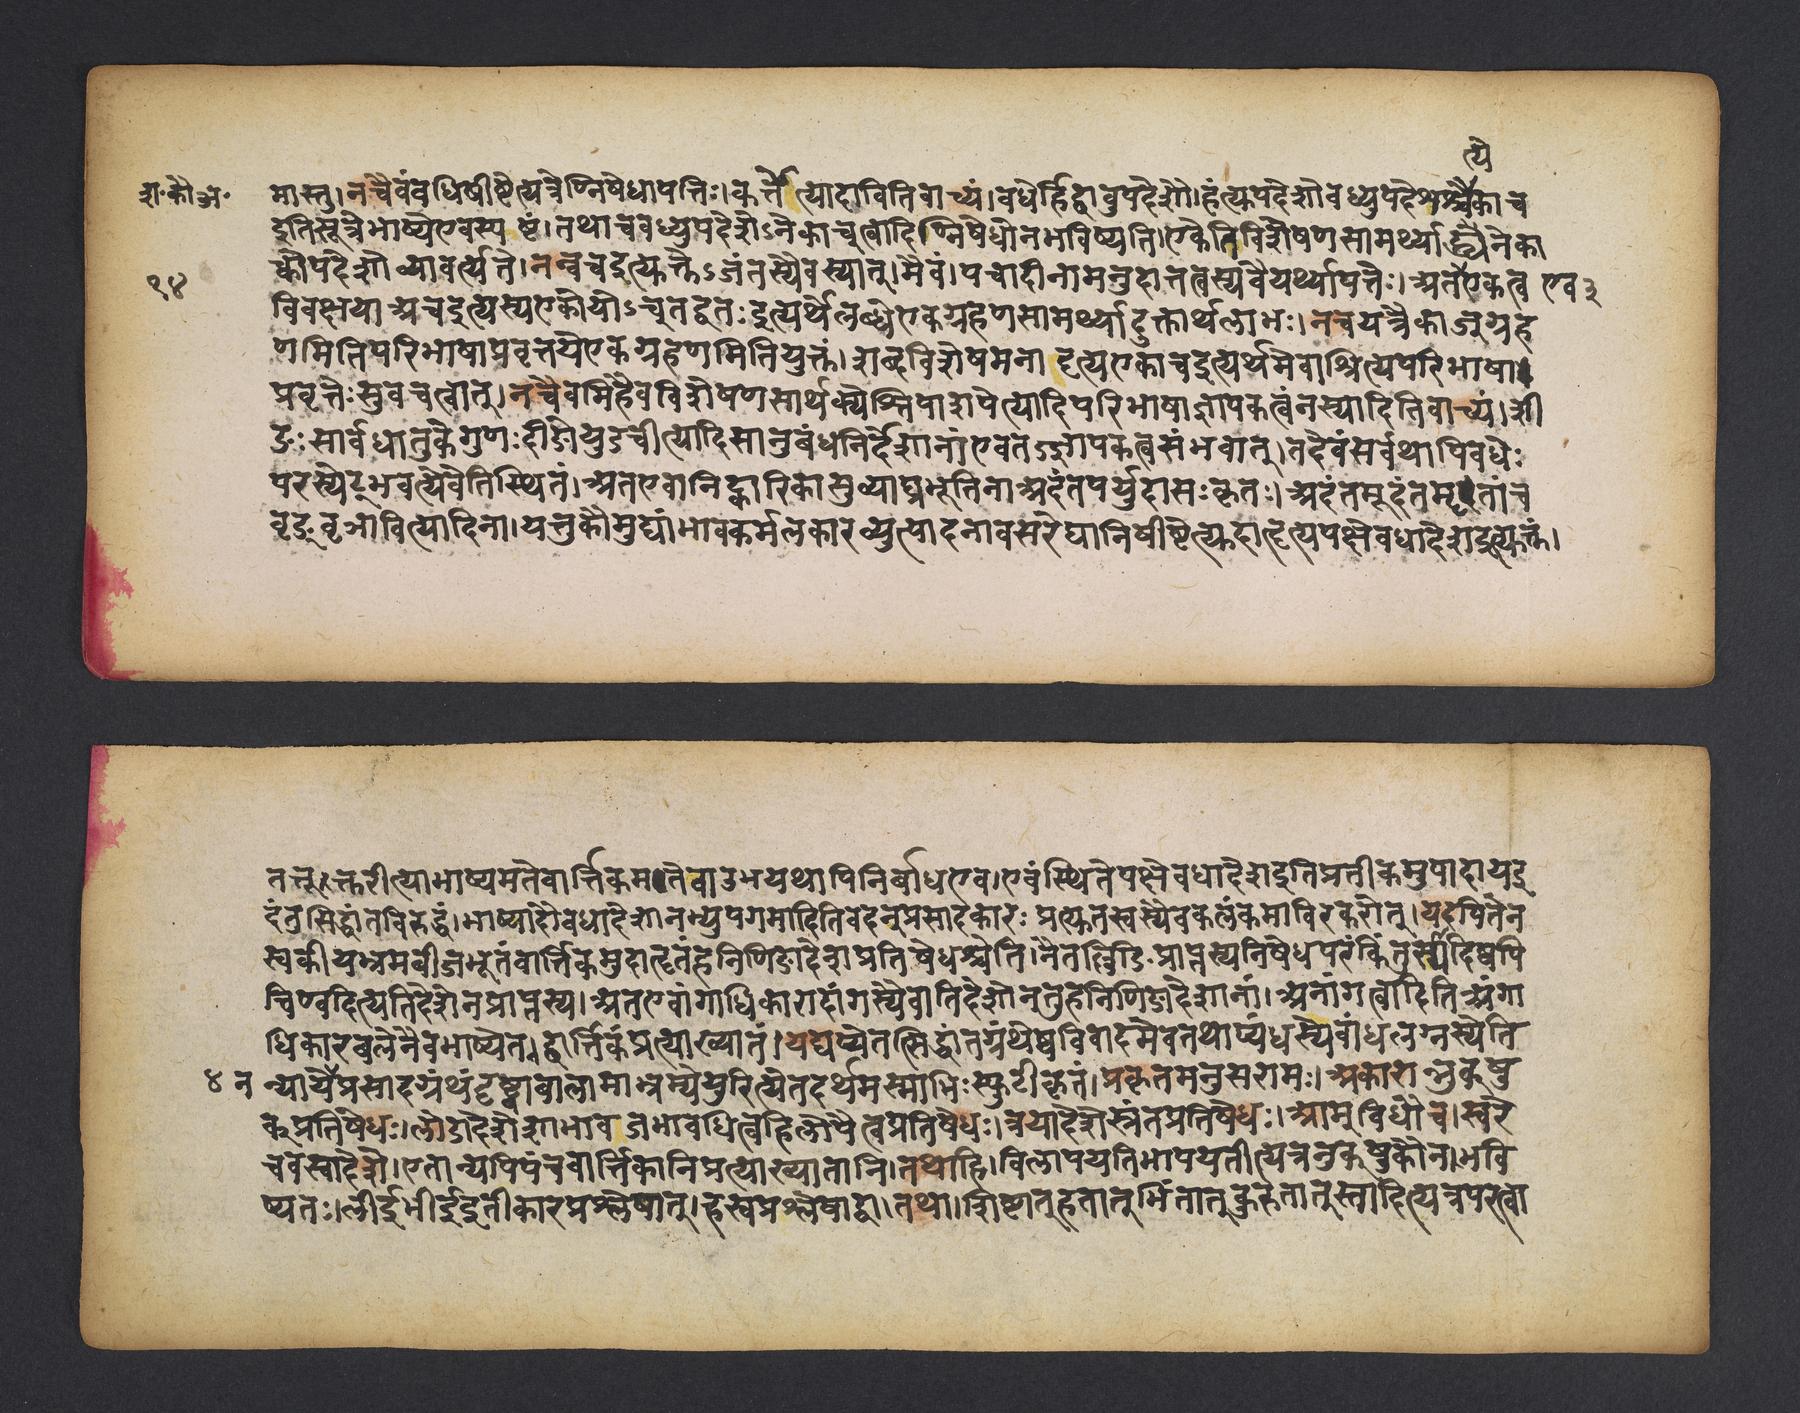 श॰ कौ अ॰
९४
त्ये
मास्तु। न चैवं वधिषीष्टेत्यत्रेण्निषेधापत्तिः। कर्त्तेत्यादाविति वाच्यं। वधेर्हि द्वावुपदेशौ। हंत्युपदेशो वध्युपदेशश्चैकाच
इति सूत्रे भाष्ये एव स्पष्टं। तथा च वध्युपदेशेऽनेकाचूत्वादिण्निषेधो न भविष्यति। एकेति विशेषणसामर्थ्याद्ध्यनेका
च्कोपदेशो व्यावर्त्यते। नन्वच इत्युक्तेऽजंतस्यैव स्यात्। मैवं। पचादीनामनुदात्तत्वस्य वैयर्थ्यापत्तेः। अत एकत्व एव ३
विवक्षया अच इत्यस्य एको योऽच् तद्वतः इत्यर्थे लब्धे एकग्रहणसामर्थ्यादुक्तार्थलाभः। न च यत्रैकाज्ग्रह
णमिति परिभाषाप्रवृत्तये एकग्रहणमिति युक्तं। शब्दविशेषमनादृत्य एकाच इत्यर्थमेवाश्रित्य परिभाषा
प्रवृत्तेः सुवचत्वात्। न चैवमिहैव विशेषणसार्थक्ये श्तिपा शपेत्यादिपरिभाषाज्ञापकत्वं न स्यादिति वाच्यं। शी
ङः सार्वधातुके गुणः दीङो युडचीत्यादिसानुबंधनिर्देशानां एव तज्ज्ञापकत्वसंभवात्। तदेवं सर्वथापि वधेः
परस्येट् भवत्येवेति स्थितं। अत एवानिट्कारिकासु व्याघ्रभूतिना अदंतपर्युदासः कृतः। अदंतमूदंतमृतां च
वृङ्वृञावित्यादिना। यत्तु कौमुद्यां भावकर्मलकारव्युत्पादनावसरे घानिषीष्टेत्युदाहृत्य पक्षे वधादेश इत्युक्तं।
तत्तूक्तरीत्या भाष्यमते वार्त्तिकमते वा उभयथापि निर्बाध एव। एवं स्थिते पक्षे वधादेश इति प्रतीकमुपादाय इ
दं तु सिद्धांतविरुद्धं। भाष्यादौ वधादेशानभ्युपगमादिति वदन् प्रसादकारः प्रत्युत स्वस्यैव कलंकमाविरकरोत्। यदपि तेन
स्वकीयभ्रमबीजभूतं वार्त्तिकमुदाहृतं हनिणिङादेशप्रतिषेधश्चेति। नैतल्लिङि प्राप्तस्य निषेधपरं किंतु स्यादिष्वपि
चिण्वदित्यतिदेशेन प्राप्तस्य। अत एवांगाधिकारादांगस्यैवातिदेशो न तु हनिणिङादेशानां। अनांगत्वादिति अंगा
धिकारबलेनैव भाष्ये तद्वार्त्तिकं प्रत्याख्यातं। यद्यप्येतत्सिद्धांतग्रंथेष्वविवादमेव तथाप्यंधस्येवांधलग्नस्येति
४ न न्यायेन प्रसादग्रंथं दृष्ट्वा बाला मा भ्रम्येयुरित्येतदर्थमस्माभिः स्फुटीकृतं। प्रकृतमनुसरामः। अकारान्नुक्षु
क्प्रतिषेधः। लोडादेशे शाभावजभावधित्वहिलोपैत्वप्रतिषेधः। त्रयादेशे स्रंतप्रतिषेधः। आम्विधौ च। स्वरे
च वस्वादेशे। एतान्यपि पंच वार्त्तिकानि प्रत्याख्यातानि। तथाहि। विलापयति भापयतीत्यत्र नुक्षुकौ न भवि
ष्यतः। ली ई भी ई इतीकारप्रश्लेषात्। ह्रस्वप्रश्लेषाद्वा। तथा। शिष्टात् हतात् भिंतात् कुरुतात् स्तादित्यत्र परत्वा